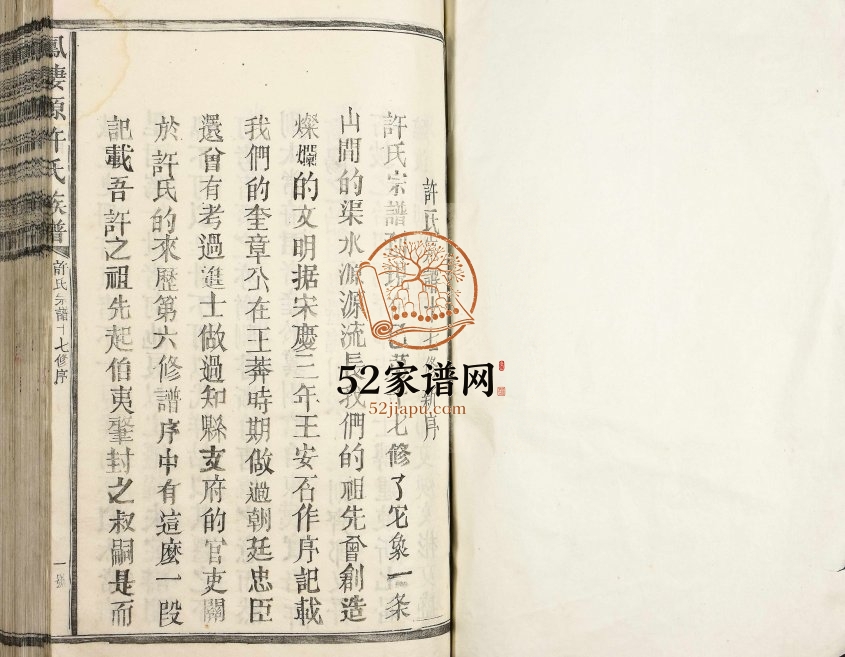 許氏宗譜十七修新序
許氏宗譜七修了它象一条
山間的渠水源源流長我們的祖先曾創造
燦爛的文明据宋慶二年王安石作序記載
我們的奎章公在王莽時期做過朝廷忠臣
還曾有考過進士做過知縣支府的官吏關
於許氏的來歷第六修譜序中有這麼一段
記載吾許之祖先起伯夷肇封之叔嗣是而
鳳棲原許氏族譜
許氏宗譜十七修序
一
52家谱网
52jiapu.com